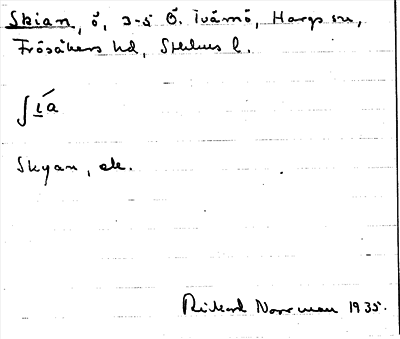 Skian, ö, 3-5 Ö. Tvärnö, Hargs sn,
Frösåkers hd, Sthlms l.
ʃı̲́a
Skyan, ek.
Rickard Norrman 1935.